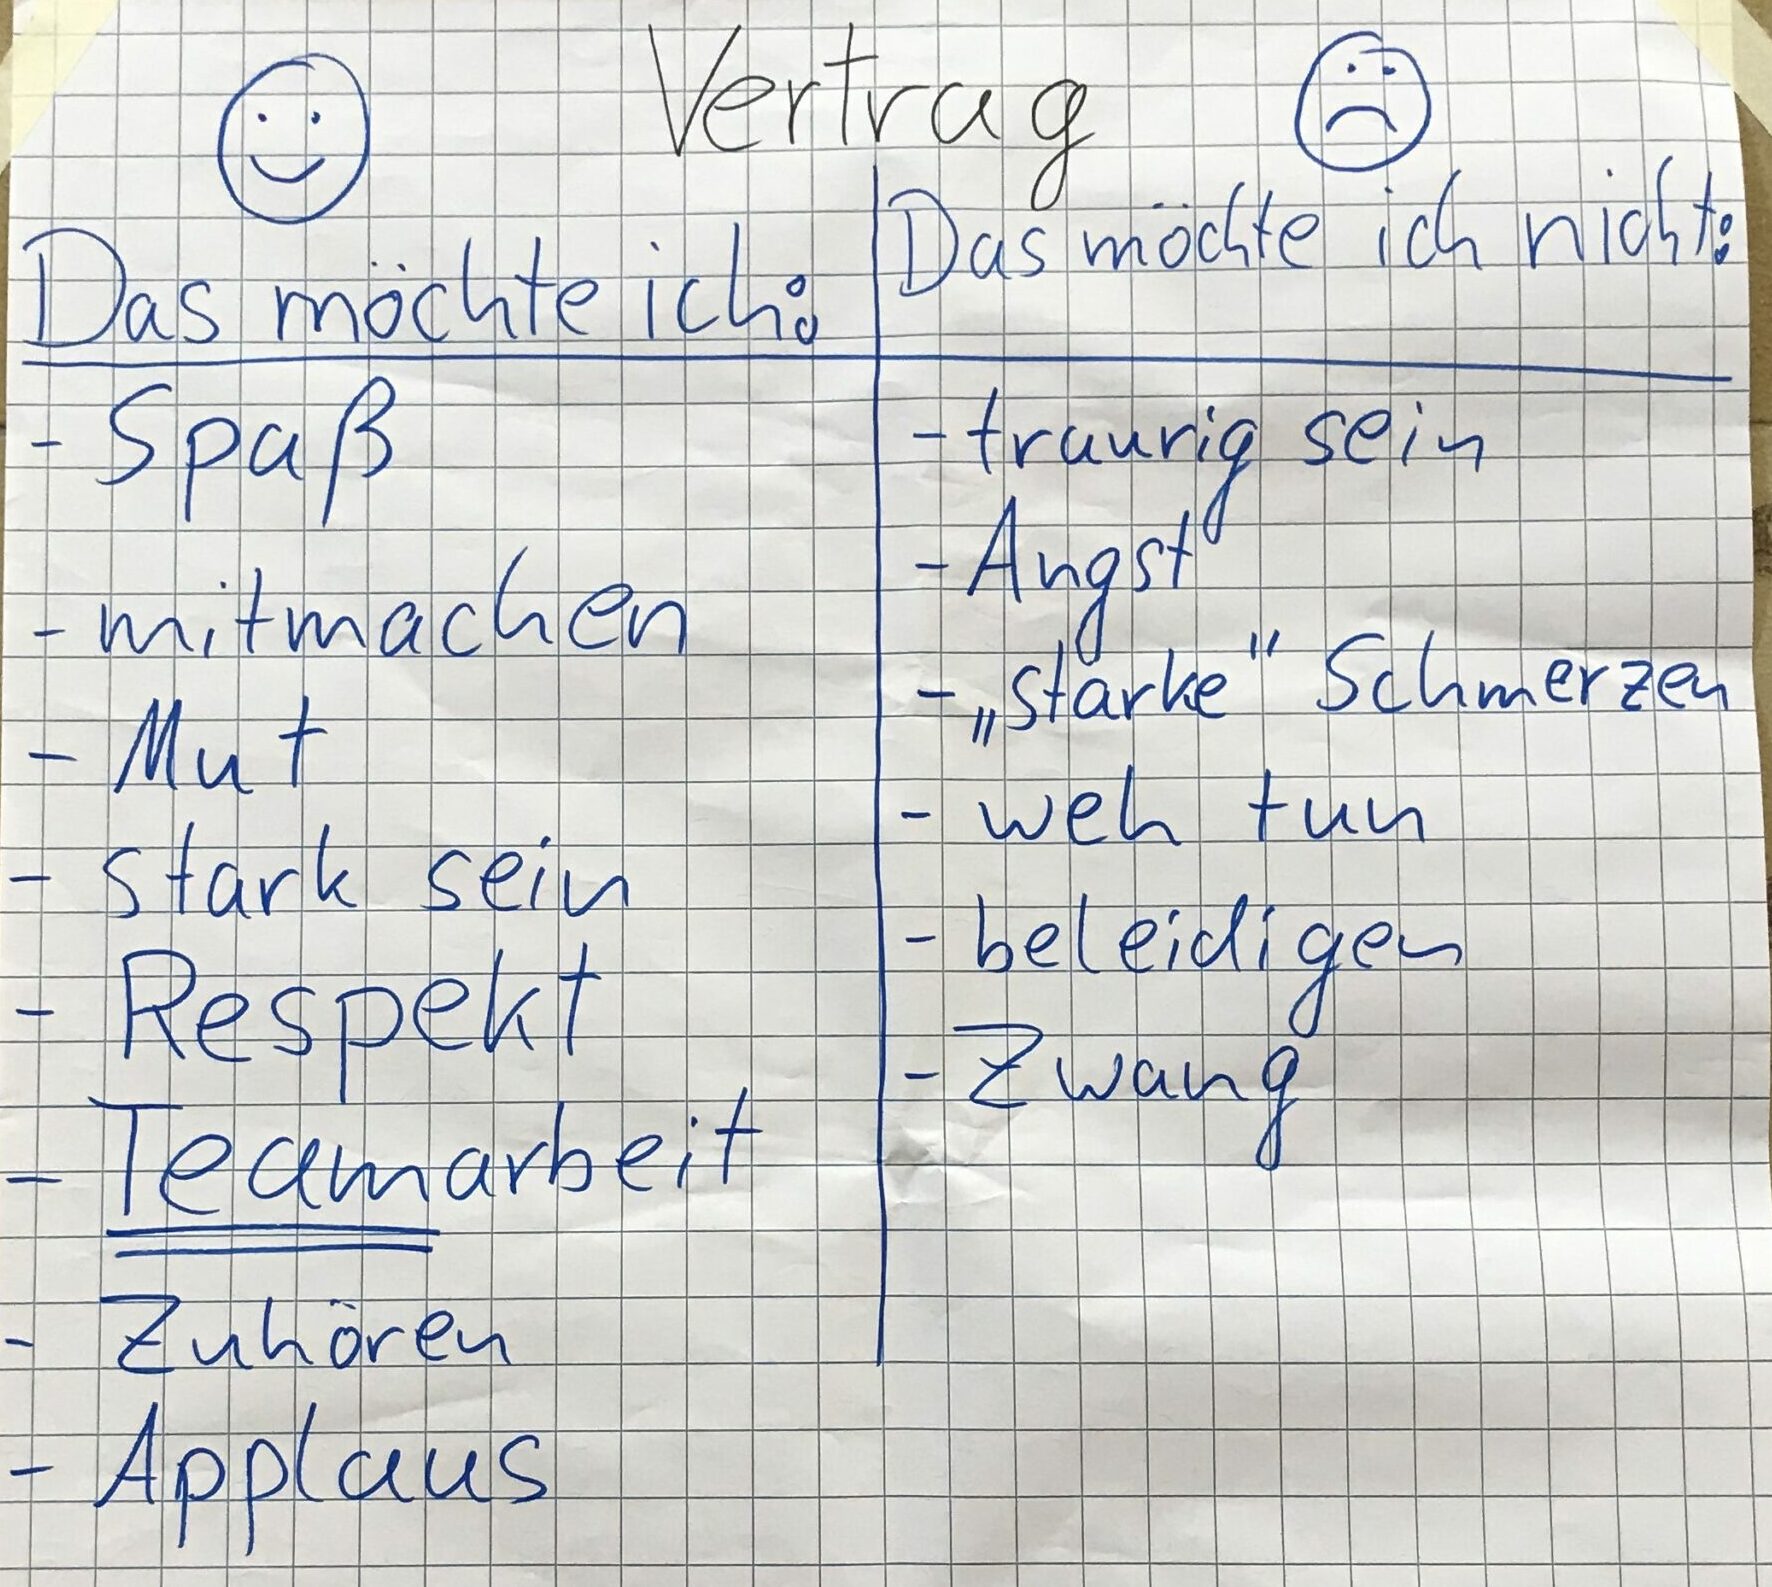 Vertrag
Das möchte ich:
- Spaß
- mitmachen
- Mut
- stark sein
- Respekt
- Teamarbeit
- Zuhören
- Applaus
Das möchte ich nicht:
- traurig sein
- Angst
- „starke" Schmerzen
- weh tun
- beleidigen
- Zwang